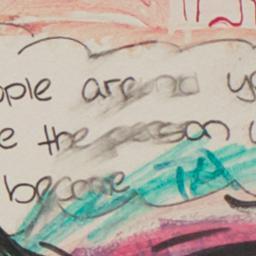 ople around y
e the person
become